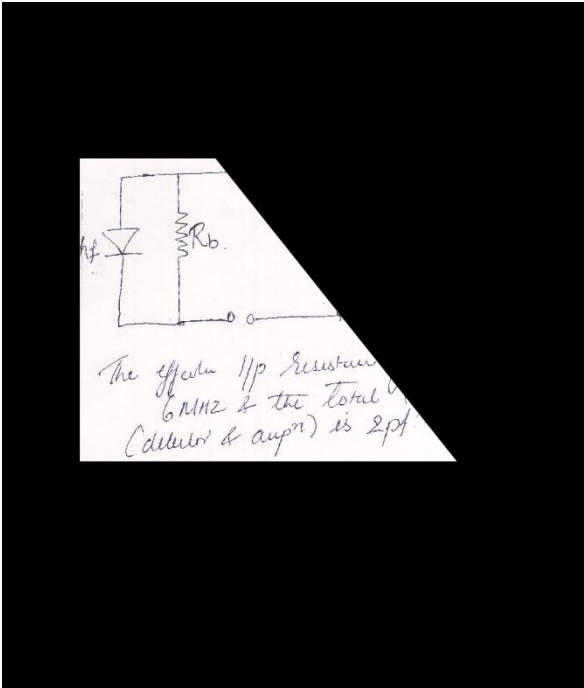 hf
Rb.
The effective I/p resistan
6 MHZ & the total
(detector & ampn) is 2pf.